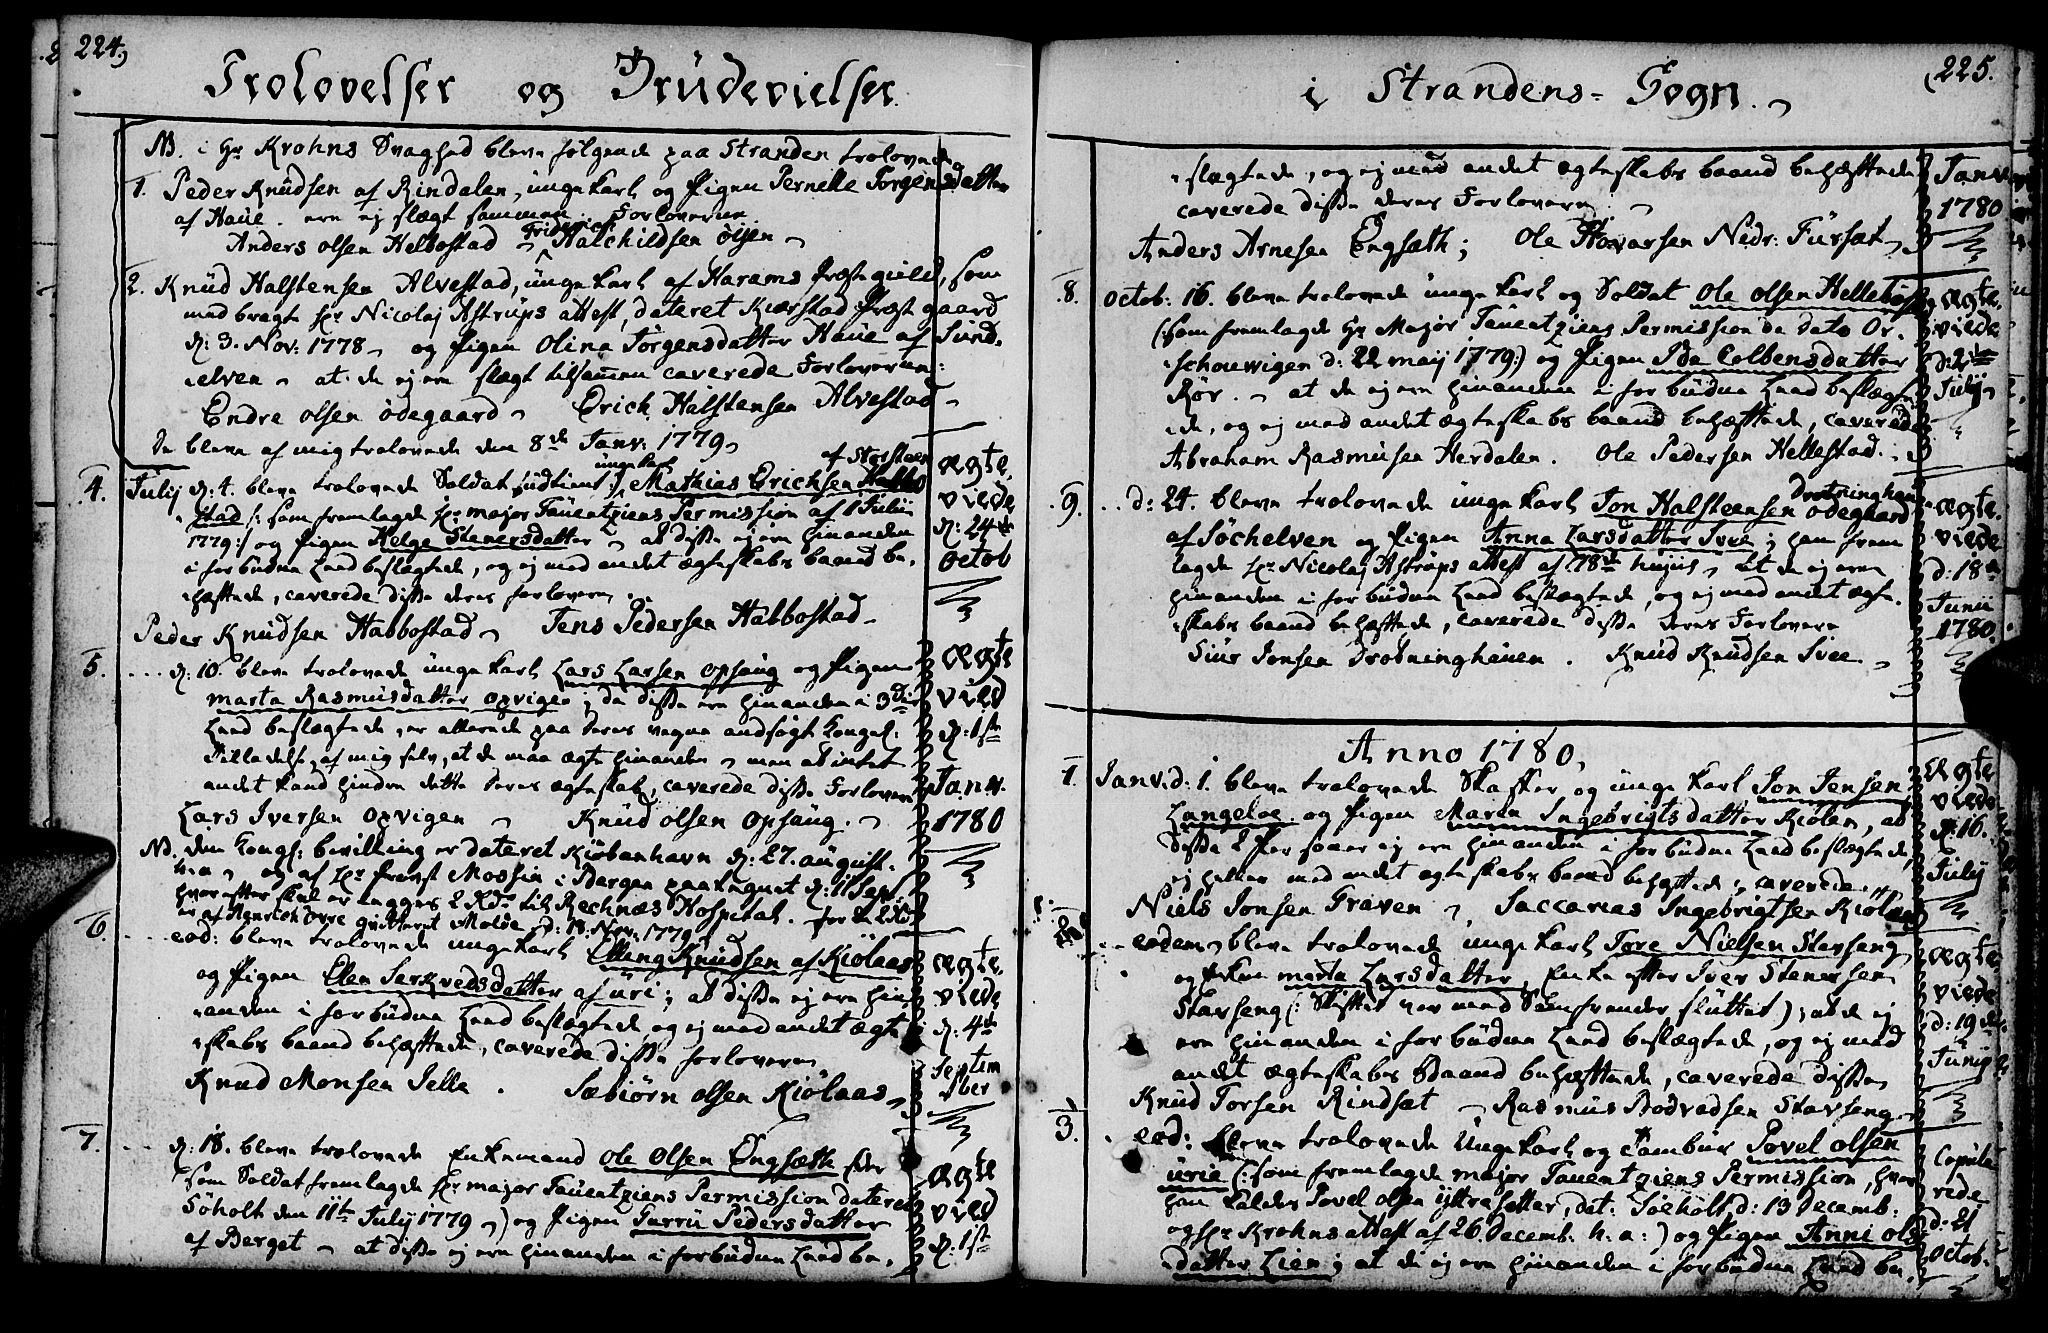 224,
Trolovelser og Brüdevielser
NB. i Hr Krohns Svaghed bleve følgende paa Stranden trolovede
1. Peder Knüdsen af Rindalen, unge karl og Pigen Pernelle Jørgensdatter
af Haüe. ere ej slægt sammen. Forloverne
Friderich
Anders olsen Helbostad ~ Halchildsen ølsen ~
2. Knüd Halstensen Alvestad, ünge karl af Harams Præstegield, som
med bragte Hr Nicolaj Astrüps attest, dateret Kiærstad Præstgaard
d: 3. Nov: 1778 ~ og Pigen Olina Jørgensdatter Haüe af Sünd-
elven ~ at de ej ere slægt tilsamen caverede Forloverne:
Endre olsen ødegaard ~ Erich Halstensen Alvestad ~
De bleve af mig trolovede den 8de Janv: 1779 ~
4. Julij d: 4. bleve trolovede Soldat unge karl Mathias Erichsen Habbo
af Storsteen
-stad /: som fremlagde Hr major Taüentziens Permission af 1 Julii
1779:/ og Pigen Helge Stenersdatter ~ at disse ej ere hinanden
i forbüdne Leed beslægtede, og ej med andet ægteskabs baand be-
hæftede, caverede disse deres forlovere
Peder Knüdsen Habbostad ~ Jens Pedersen Habbostad ~
ægte
viede
d: 24de
octob
5. ... d: 10. bleve trolovede ünge karl Lars Larsen opsaüg og Pigen
marta Rasmüsdatter opvigen; da disse ere hinanden i 3die
Leed beslægtede, er allerede paa deres vegne andsøgt Kongel:
Tilladelse, af mig selv, at de maa ægte hinanden ~ men at intet
andet kand hindre dette deres ægteskab, caverede disse Forlovere
Lars Iversen opvigen ~ Knüd olsen opsaüg. ~
ægte
vied
d: 1ste
Janv.
1780
NB. den Kongl: bevilling er dateret Kiøbenhavn d: 27. august.
h: a ~ og af Hr Provst Mossin i Bergen paategnet d: 11 Sept.
hvor efter skal erlægges 2 Rdr til Rechnæs Hospital. for de 2 Rdr
er af Henrich Orre qvitteret Molde d: 18. Nov. 1779.
6. ... eod: bleve trolovede ungekarl Elling Knüdsen af Kiølaas
og Pigen Elen Serkvedsdatter af üri; at disse ej ere hin-
anden i forbüdne Leed beslægtede og ej med andet ægte
skabs baand behæftede, caverede disse forlovere
Knud Monsen Selle. Sæbiørn olsen Kiölaas ~
ægte
viede
d: 4de
Septem
ber
7. ... d: 18. bleve trolovede Enkemand Ole Olsen Engsæth
som Soldat fremlagde Hr major Taüentziens Permission dateret
Söholt den 11te Julij 1779 ~) og Pigen Gurrü Pedersdatter
af Berget ~ at disse ej ere hinanden i forbüdne Leed be-
ægte
vied
d: 1ste
225.
i Strandens = Sogn. ~
-slægtede, og ej med andet ægteskabs baand behæftede
caverede disse deres Forlovere
Anders Arnesen Engsæth; Ole Hovarsen Nedr: Fürsæt ~
Janv
1780
8. octob: 16. bleve trolovede ünge karl og Soldat Ole olsen Hellebost
(som fremlagde Hr Major Taüentziens Permission de dato Or-
-schouwigen d: 22 maij 1779:) og Pigen Ida Colbensdatter
Rör. ~ at de ej ere hinanden i forbüdne Leed beslægte
de, og ej med andet ægteskabs baand behæftede, caverede
Abraham Rasmüsen Herdalen. Ole Pedersen Hellestad.
ægte
viede
d: 2de
Julij
9. .. d: 24. bleve trolovede ünge karl Jon Halsteensen ødegaard
Drotninghaue
af Söchelven og Pigen Anna Larsdatter Sve; han frem
lagde Hr Nicolaj Astrüps attest af 18de hujus ~ At de ej ere
hinanden i forbüdne Leed beslægtede, og ej med andet ægte-
skabs baand behæftede, caverede disse deres Forlovere
Siur Jonsen Drotninghaüen. Knüd Knüdsen Sve ~
ægte
viede
d: 18de
Junii
1780.
Anno 1780,
1. Janv. d: 1. bleve trolovede Skafter og ünge karl Jon Jensen
Langeloe og Pigen Maren Ingebrigtsdatter Kiølen, at
disse 2 Personer ej ere hinanden i forbüdne Leed beslægtede,
ej heller med andet ægteskabs baand behæftede, caverede
Niels Jonsen Graven ~ Saccarias Ingebrigtsen Kiölaas
Ægte
viede
d: 16.
Julij
.. eodem ~ bleve trolovede ünge karl Tore Nielsen Stavseng
og Enken marta Larsdatter, Enke efter Iver Stenersen
Stavseng (: Skiftet var med Samfrænder slüttet); at de ej
ere hinanden i forbüdne Leed beslægtede, og ej med
andet ægteskabs Baand behæftede, caverede disse
Knüd Torsen Rindsæt ~ Rasmüs Bodvedsen Stavseng ~
ægte
viede
d: 19de
Junij
3. . eod: bleve trolovede Ungekarl og Tambür Povel olsen
ürie (: som fremlagde major Taüentziens Permission, hvor
han kaldes Povel olsen yttre setter, dat: Söeholt d: 13 Decemb:
og Hr Krohns attest af 26. Decemb. h. a:) og Pigen Anni ols
-datter Lien; at de ej ere hinanden i forbüdne Leed be-
Copüle
rede
d: 21
octob.